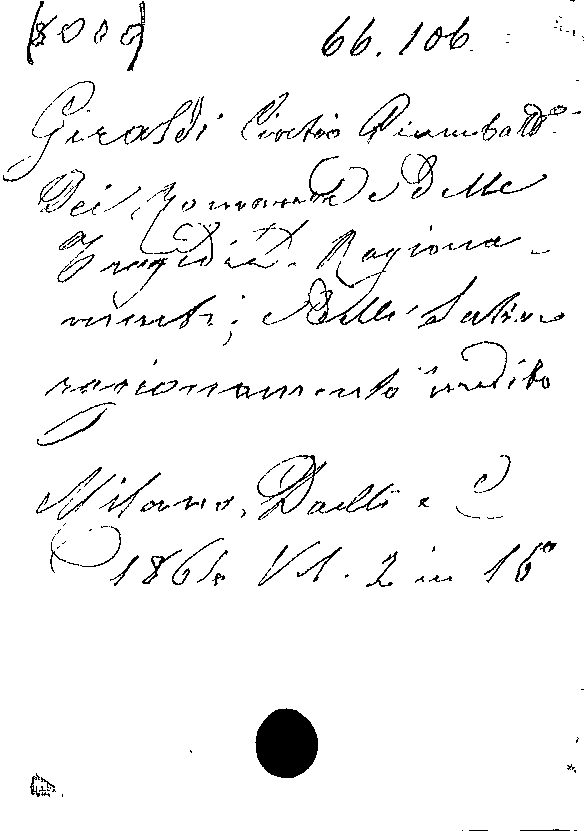 (8000)
66.106.
Giraldi Cintio Giambatt.ª
Dei Romanzi e delle
Tragedie. Ragiona-
menti; e Delle Satire
ragionamento inedito
Milano, Daelli e C
1864 Vol. 2 in 16°